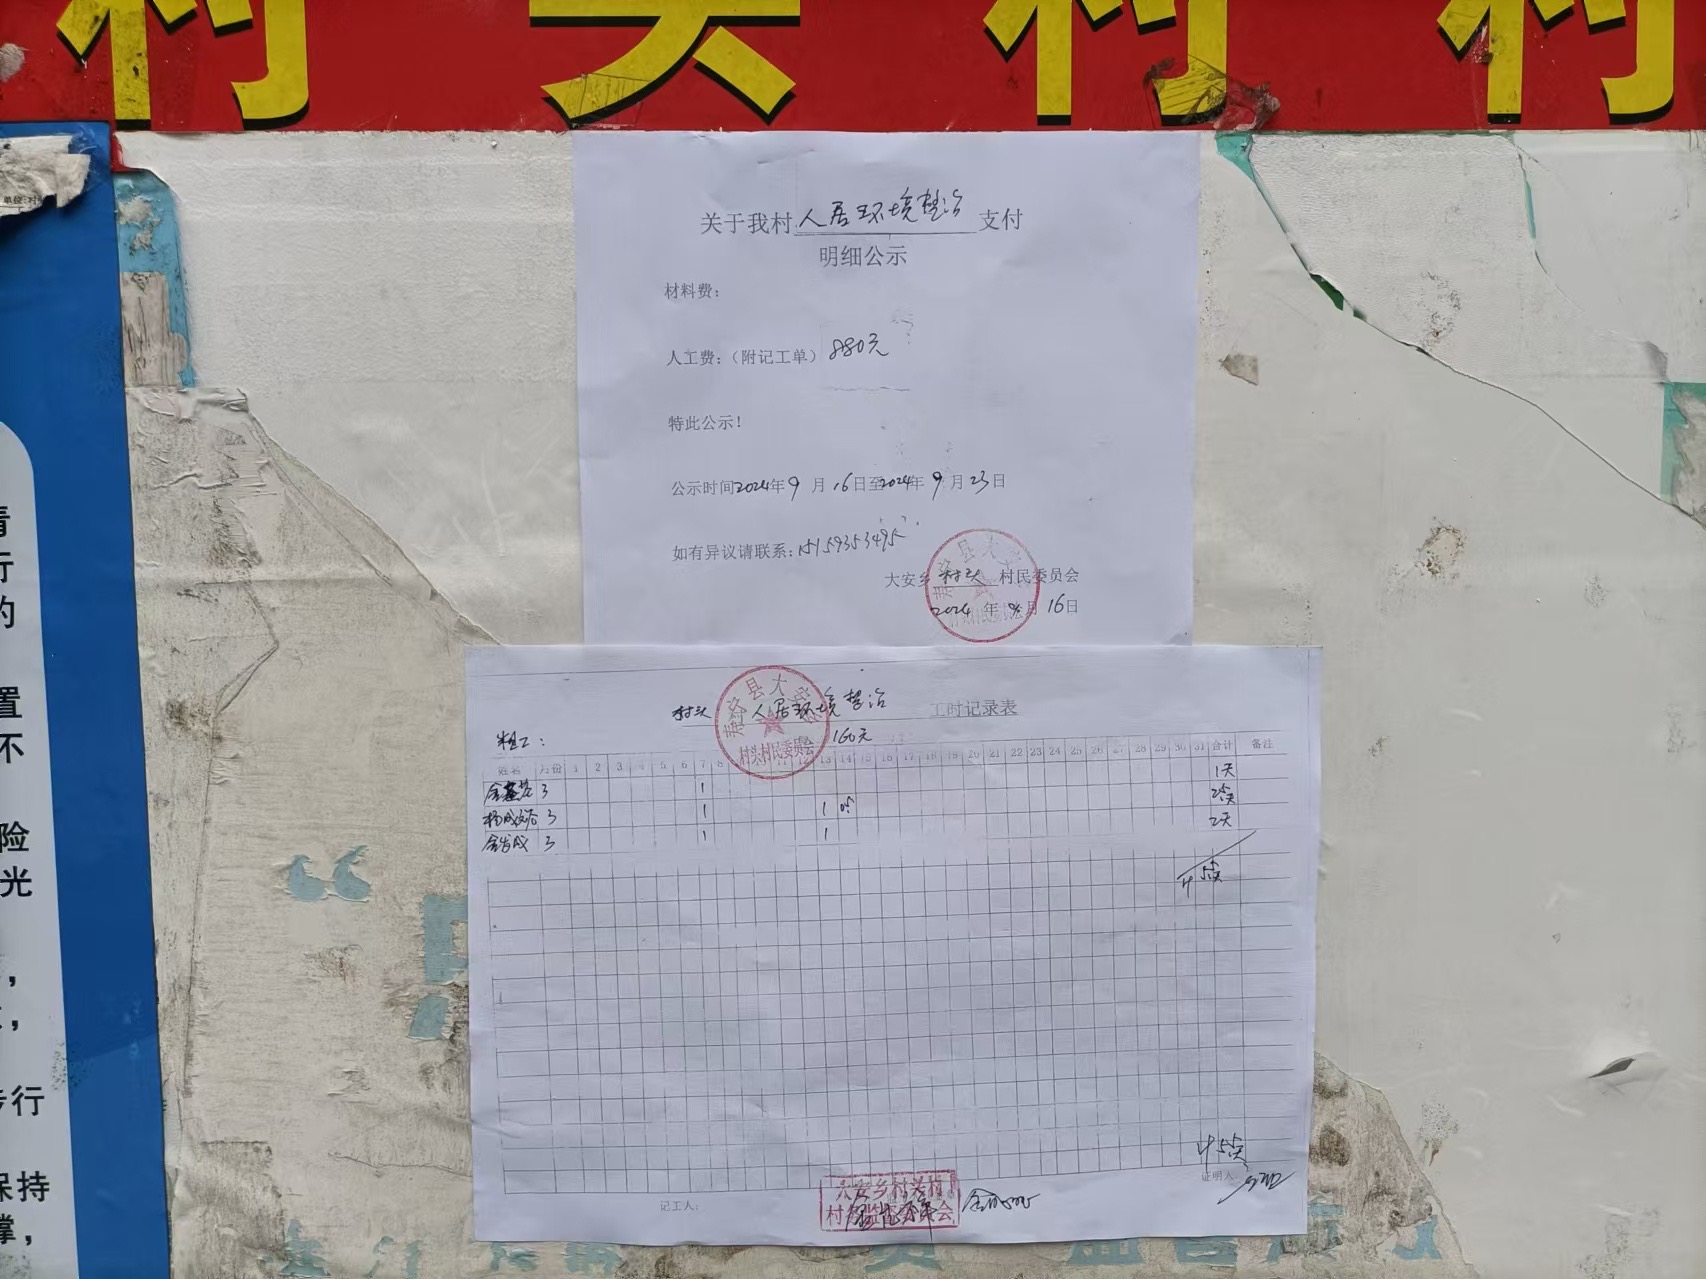 村头村村
关于我村人居环境整治支付
明细公示
材料费：
人工费：（附记工单）880元
特此公示！
公示时间2024年9月16日至2024年9月23日
如有异议请联系：15159353495
大安乡村头村民委员会
2024年9月16日
村头人居环境整治工时记录表
粗工：160元
村头村民委员会
姓名 月份 1 2 3 4 5 6 7 8 13 14 15 16 17 18 19 20 21 22 23 24 25 26 27 28 29 30 31 合计 备注
3 1 1天
3 1 1 0.5 2.5天
3 1 1 2天
计5.5天
计5.5天
证明人：
记工人：
大安乡村头村
村务监督委员会
险
光
步行
保持